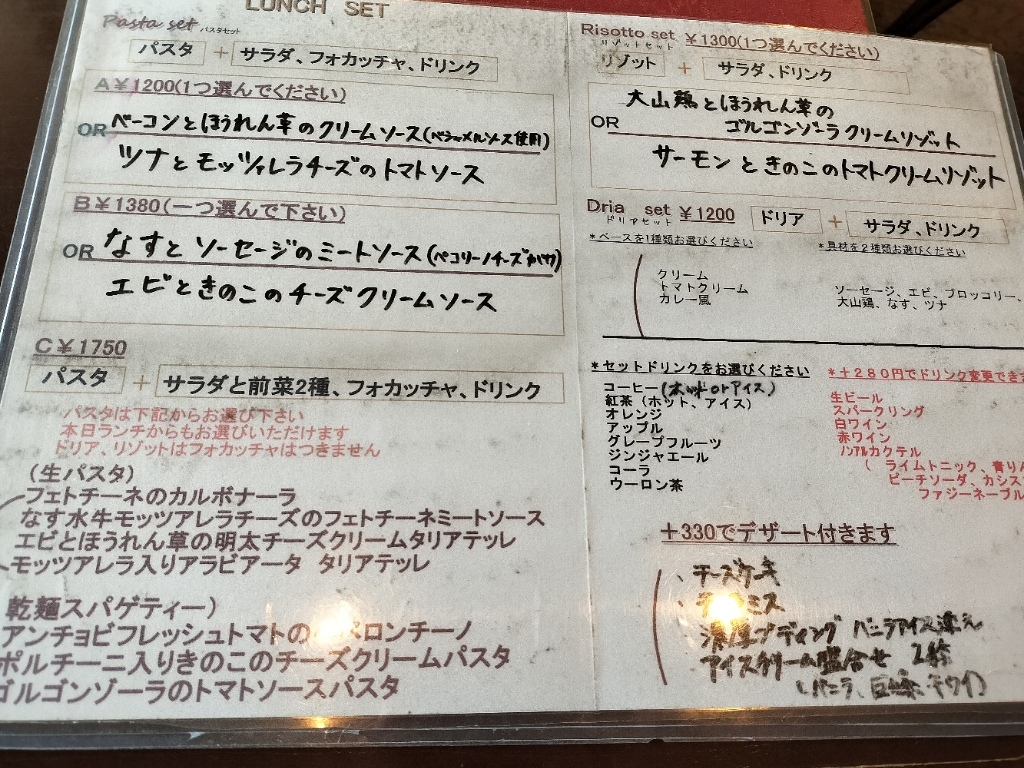 LUNCH SET
Pasta set パスタセット
パスタ + サラダ、フォカッチャ、ドリンク
A¥1200(1つ選んでください)
OR ベーコンとほうれん草のクリームソース(ベシャメルソース使用)
ツナとモッツァレラチーズのトマトソース
B¥1380(一つ選んで下さい)
OR なすとソーセージのミートソース(ペコリーノチーズがけ)
エビときのこのチーズクリームソース
C¥1750
パスタ + サラダと前菜2種、フォカッチャ、ドリンク
パスタは下記からお選び下さい
本日ランチからもお選びいただけます
ドリア、リゾットはフォカッチャはつきません
(生パスタ)
フェトチーネのカルボナーラ
なす水牛モッツアレラチーズのフェトチーネミートソース
エビとほうれん草の明太チーズクリームタリアテッレ
モッツアレラ入りアラビアータ タリアテッレ
乾麺スパゲティー)
アンチョビフレッシュトマトの ペロンチーノ
ポルチーニ入りきのこのチーズクリームパスタ
ゴルゴンゾーラのトマトソースパスタ
Risotto set ¥1300(1つ選んでください)
リゾットセット
リゾット + サラダ、ドリンク
大山鶏とほうれん草の
OR ゴルゴンゾーラクリームリゾット
サーモンときのこのトマトクリームリゾット
Dria set ¥1200 ドリア + サラダ、ドリンク
ドリアセット
*ベースを1種類お選びください *具材を2種類お選びください
クリーム
トマトクリーム
カレー風
ソーセージ、エビ、ブロッコリー、
大山鶏、なす、ツナ
*セットドリンクをお選びください
コーヒー(ホット or アイス)
紅茶(ホット、アイス)
オレンジ
アップル
グレープフルーツ
ジンジャエール
コーラ
ウーロン茶
*+280円でドリンク変更でき
生ビール
スパークリング
白ワイン
赤ワイン
ノンアルカクテル
(ライムトニック、青り
ピーチソーダ、カシス
ファジーネーブル
+330でデザート付きます
、チーズケーキ
、ティラミス
濃厚プディング バニラアイス添え
アイスクリーム盛合せ 2種
(バニラ、巨峰、キウイ)